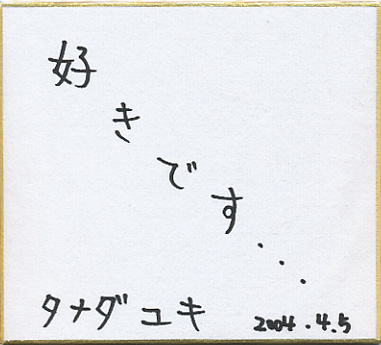 好きです...
タナダユキ 2004.4.5